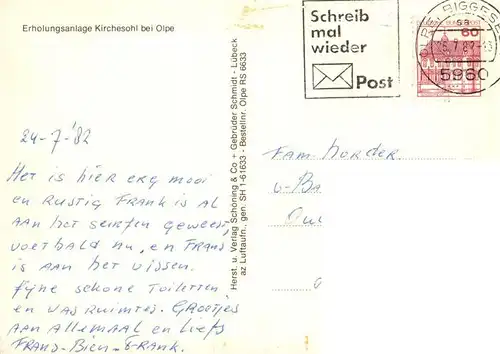 Erholungsanlage Kirchesohl bei Olpe
Schreib
mal
wieder
Post
BIGGESE
sa
60
26.7.82-13
5960
Herst. u. Verlag Schöning & Co + Gebrüder Schmidt - Lübeck
az Luftaufn., gen. SH 1-61633 - Bestellnr. Olpe RS 6633
24-7-'82
Het is hier erg mooi
en rustig Frank is al
aan het surfen geweest,
voetbald nu, en Frans
is aan het vissen.
Fijne schone toiletten
en wasruimtes. Groetjes
aan allemaal en liefs
Frans-Bien-Frank.
Fam Horder